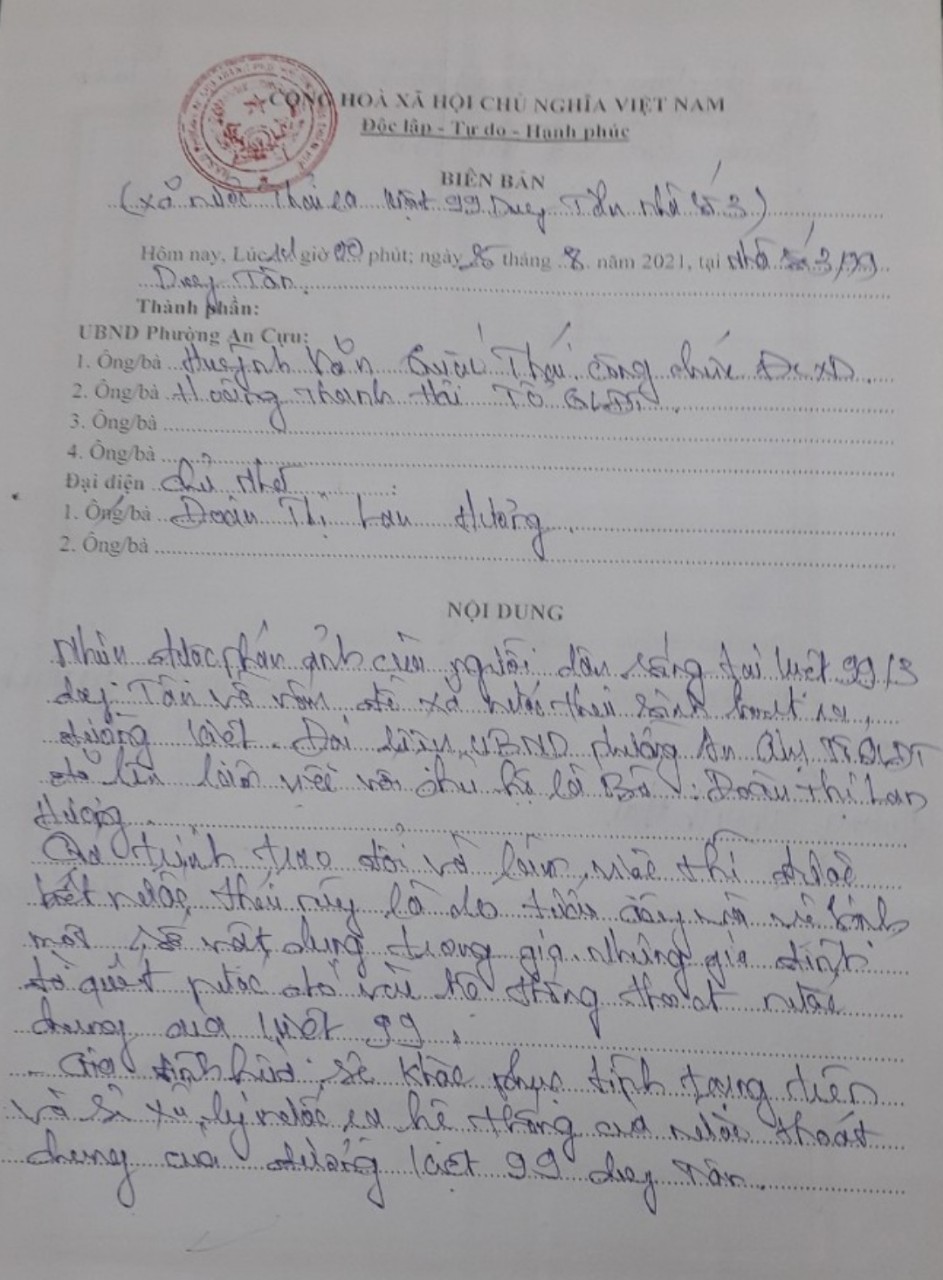 CỘNG HOÀ XÃ HỘI CHỦ NGHĨA VIỆT NAM
Độc lập - Tự do - Hạnh phúc
BIÊN BẢN
(Xả nước thải ra kiệt 99 Duy Tân nhà số 3)
Hôm nay, Lúc giờ 00 phút; ngày tháng 8 năm 2021, tại nhà số 3/99
Duy Tân
Thành phần:
UBND Phường An Cựu:
1. Ông/bà Huỳnh Văn Quốc Thái công chức ĐCXD
2. Ông/bà Hoàng Thanh Hải Tổ QLĐT
3. Ông/bà
4. Ông/bà
Đại diện chủ nhà :
1. Ông/bà Đoàn Thị Lan Hương
2. Ông/bà
NỘI DUNG
Nhận được phản ánh của người dân sống tại kiệt 99/3
duy Tân về vấn đề xả nước thải sinh hoạt ra
đường kiệt. Đại diện UBND phường An Cựu, Tổ QLĐT
đã lên làm việc với chủ hộ là Bà: Đoàn Thị Lan
Hương
Quá trình trao đổi và làm việc thì được
biết nước thải này là do tưới cây và vệ sinh
một số vật dụng trong gia nhưng gia đình
đã quét nước đó vào hệ thống thoát nước
chung của kiệt 99.
- Gia đình hứa sẽ khắc phục tình trạng trên
và sẽ xử lý nước ra hệ thống của nước thoát
chung của đường kiệt 99 duy Tân.